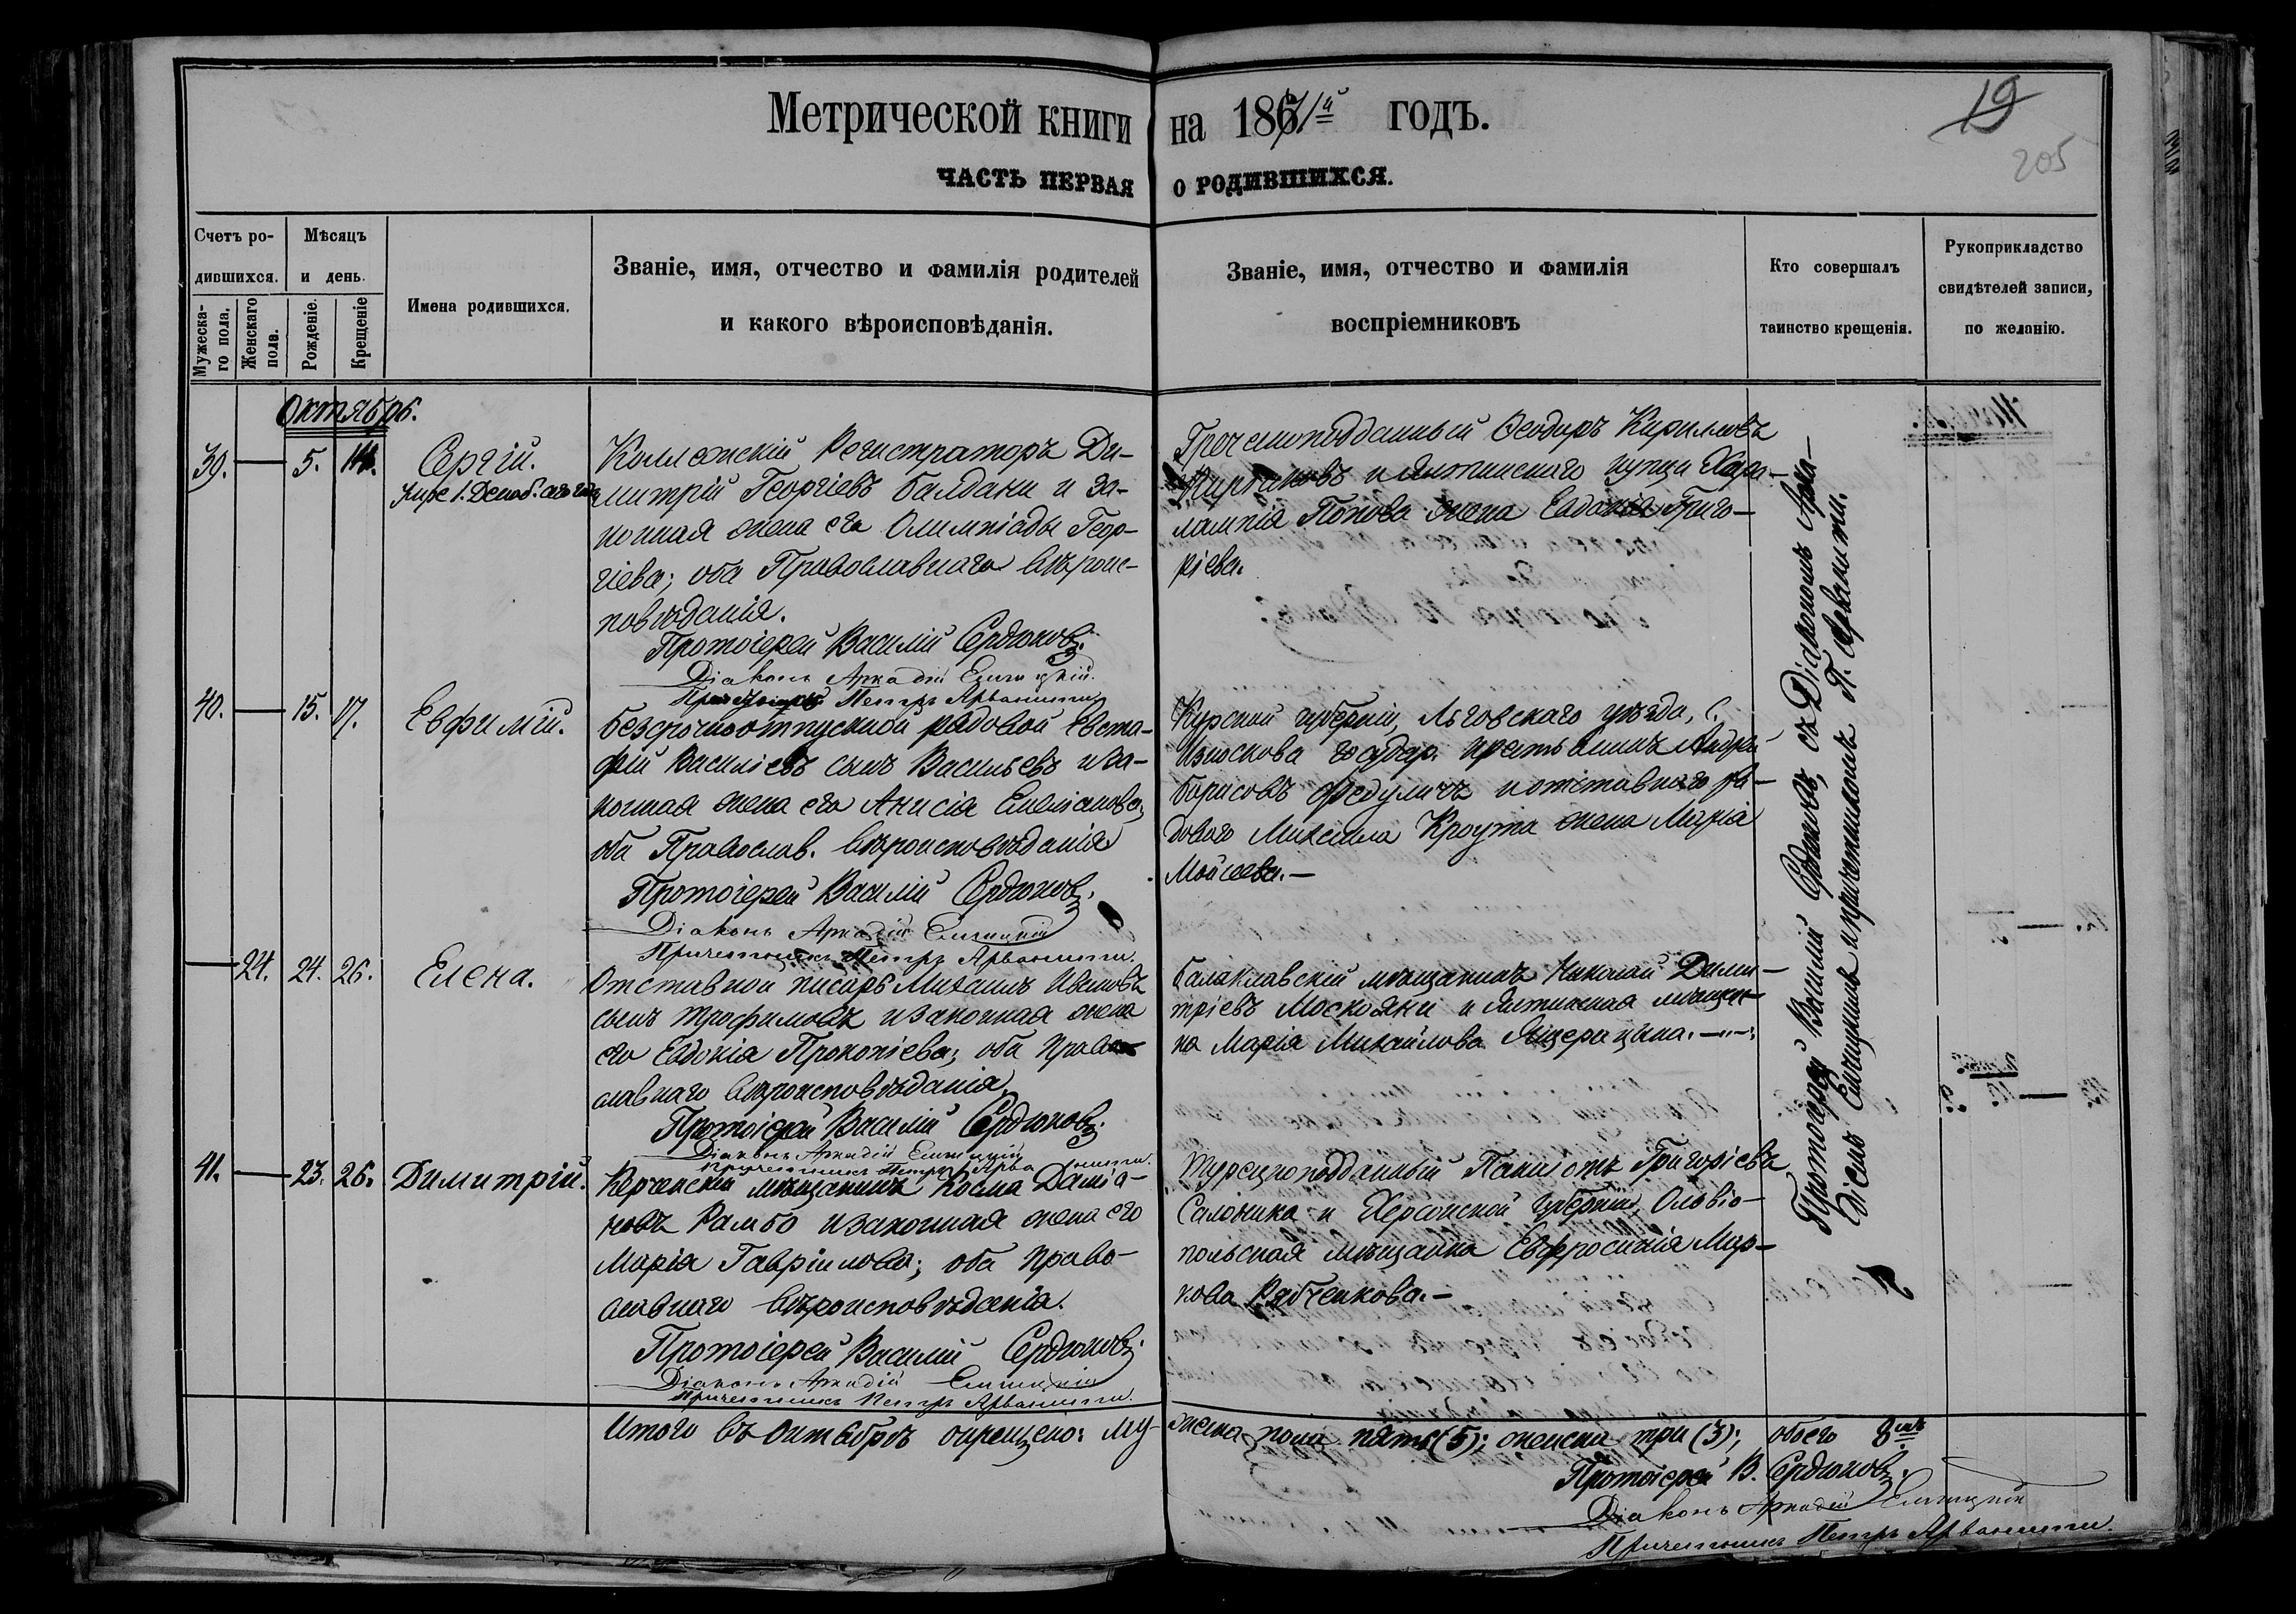 Метрической книги на 1871й годъ.
19
205
ЧАСТЬ ПЕРВАЯ О РОДИВШИХСЯ.
Счетъ родившихся.
Мужескаго пола.
Женскаго пола.
Мѣсяцъ и день.
Рожденіе.
Крещеніе
Имена родившихся.
Званіе, имя, отчество и фамилія родителей
и какого вѣроисповѣданія.
Званіе, имя, отчество и фамилія
воспріемниковъ
Кто совершалъ
таинство крещенія.
Рукоприкладство
свидѣтелей записи,
по желанію.
Октябрь.
39. — 5.
Сергій.
Коллежскій Регистраторъ Ди-
митрій Георгіевъ Балдани и за-
конная жена его Олимпіада Геор-
гіева; оба Православнаго вѣроис-
повѣданія.
Протоіерей Василій Сердюковъ.
Діаконъ Аркадій
Причетникъ Петръ Арванити
Греческоподданный Ѳеодоръ Кирилловъ
и Ялтинскаго купца Хара-
лампія Попова жена Евдокія Григо-
ріева.
40. — 15. 17.
Евфимій.
Безсрочноотпускной рядовой Евста-
фій Василіевъ сынъ Васильевъ и за-
конная жена его Анисія Емеліанова,
оба Православ. вѣроисповѣданія
Протоіерей Василій Сердюковъ.
Діаконъ Аркадій
Причетникъ Петръ Арванити.
Курской губерніи, Льговскаго уѣзда, С.
Износкова государ. крестьянинъ Андрей
Борисовъ Федуличъ и отставнаго ря-
доваго Михаила Кроута жена Марія
Мойсеева.—
— 24. 24. 26.
Елена.
Отставной писарь Михаилъ Ивановъ
сынъ Трофимовъ и законная жена
его Евдокія Прокопіева; оба право-
славнаго вѣроисповѣданія.
Протоіерей Василій Сердюковъ.
Діаконъ Аркадій
Причетникъ Петръ Арванити.
Балаклавскій мѣщанинъ Николай Дими-
тріевъ Москояни и Ялтинская мѣщан-
ка Марія Михайлова Ящерицына.—
41. — 23. 26.
Димитрій.
Керченскій мѣщанинъ Косма Даміа-
новъ Рамбо и законная жена его
Марія Гавріилова; оба право-
славнаго вѣроисповѣданія.
Протоіерей Василій Сердюковъ.
Діаконъ Аркадій
Причетникъ Петръ Арванити.
Турецкоподданный Панаіотъ Григоріевъ
Салоника и Херсонской губерніи, Ольвіо-
польская мѣщанка Евфросинія Мар-
кова Рябченкова.—
Протоіерей Василій Сердюковъ, съ Діакономъ Арка-
діемъ и причетникомъ П. Арванити.
Итого въ Октябрѣ окрещено: му-
жеска пола пять (5); женска три (3); обоего 8мь
Протоіерей В. Сердюковъ.
Діаконъ Аркадій
Причетникъ Петръ Арванити.